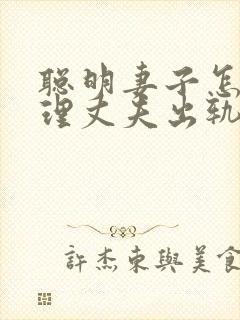 聪明妻子怎
理丈夫出轨
許杰東與美食